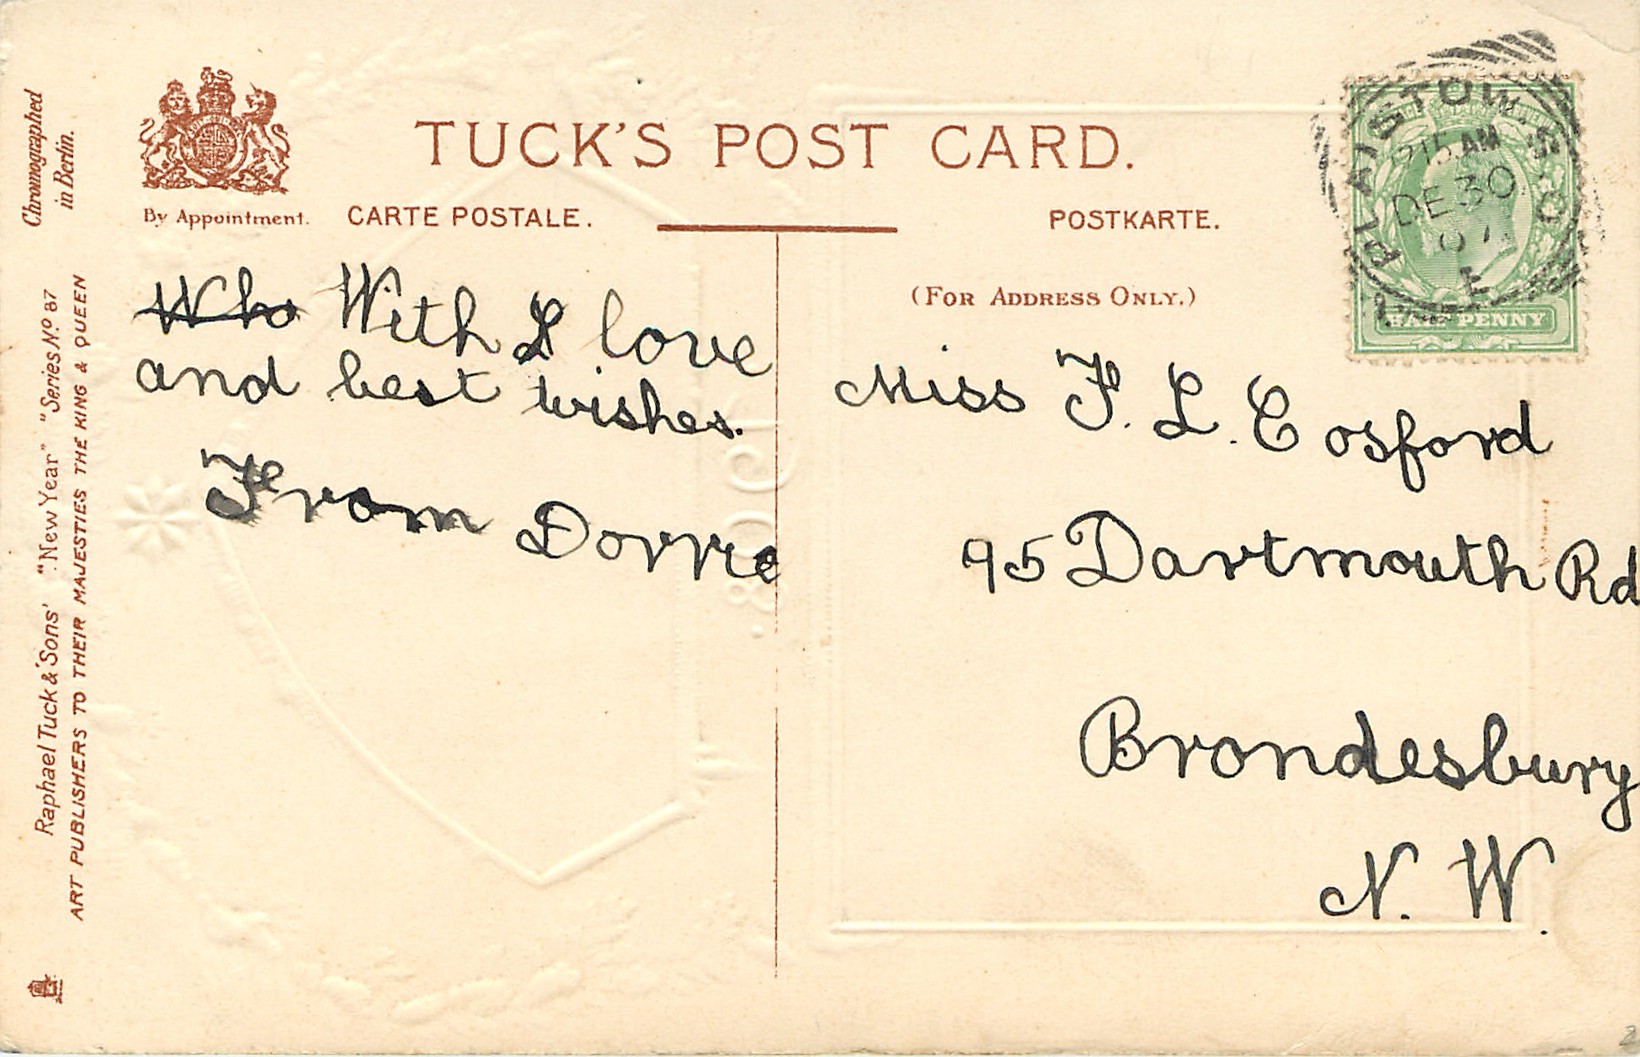 TUCK'S POST CARD.
By Appointment.
CARTE POSTALE.
POSTKARTE.
(FOR ADDRESS ONLY.)
Chromographed
in Berlin.
Raphael Tuck & Sons' "New Year" "Series Nº 87
ART PUBLISHERS TO THEIR MAJESTIES THE KING & QUEEN
Who With L love
and best wishes.
From Dorrie
PLAISTOW S.O.
915 AM
DE 30
07
E
HALF PENNY
Miss F. L. Cosford
95 Dartmouth Rd
Brondesbury
N. W.